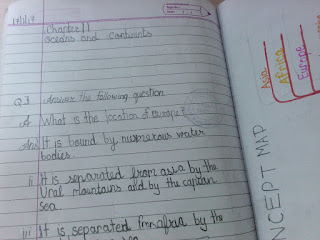 Chapter 11
Oceans and Continents
Q I Answer the following question
A What is the location of Europe?
Ans It is bound by numerous water
bodies.
ii It is separated from asia by the
Ural mountains and by the caspian
sea.
iii It is separated from africa by the
sea.
Asia
Africa
Europe
CONCEPT MAP